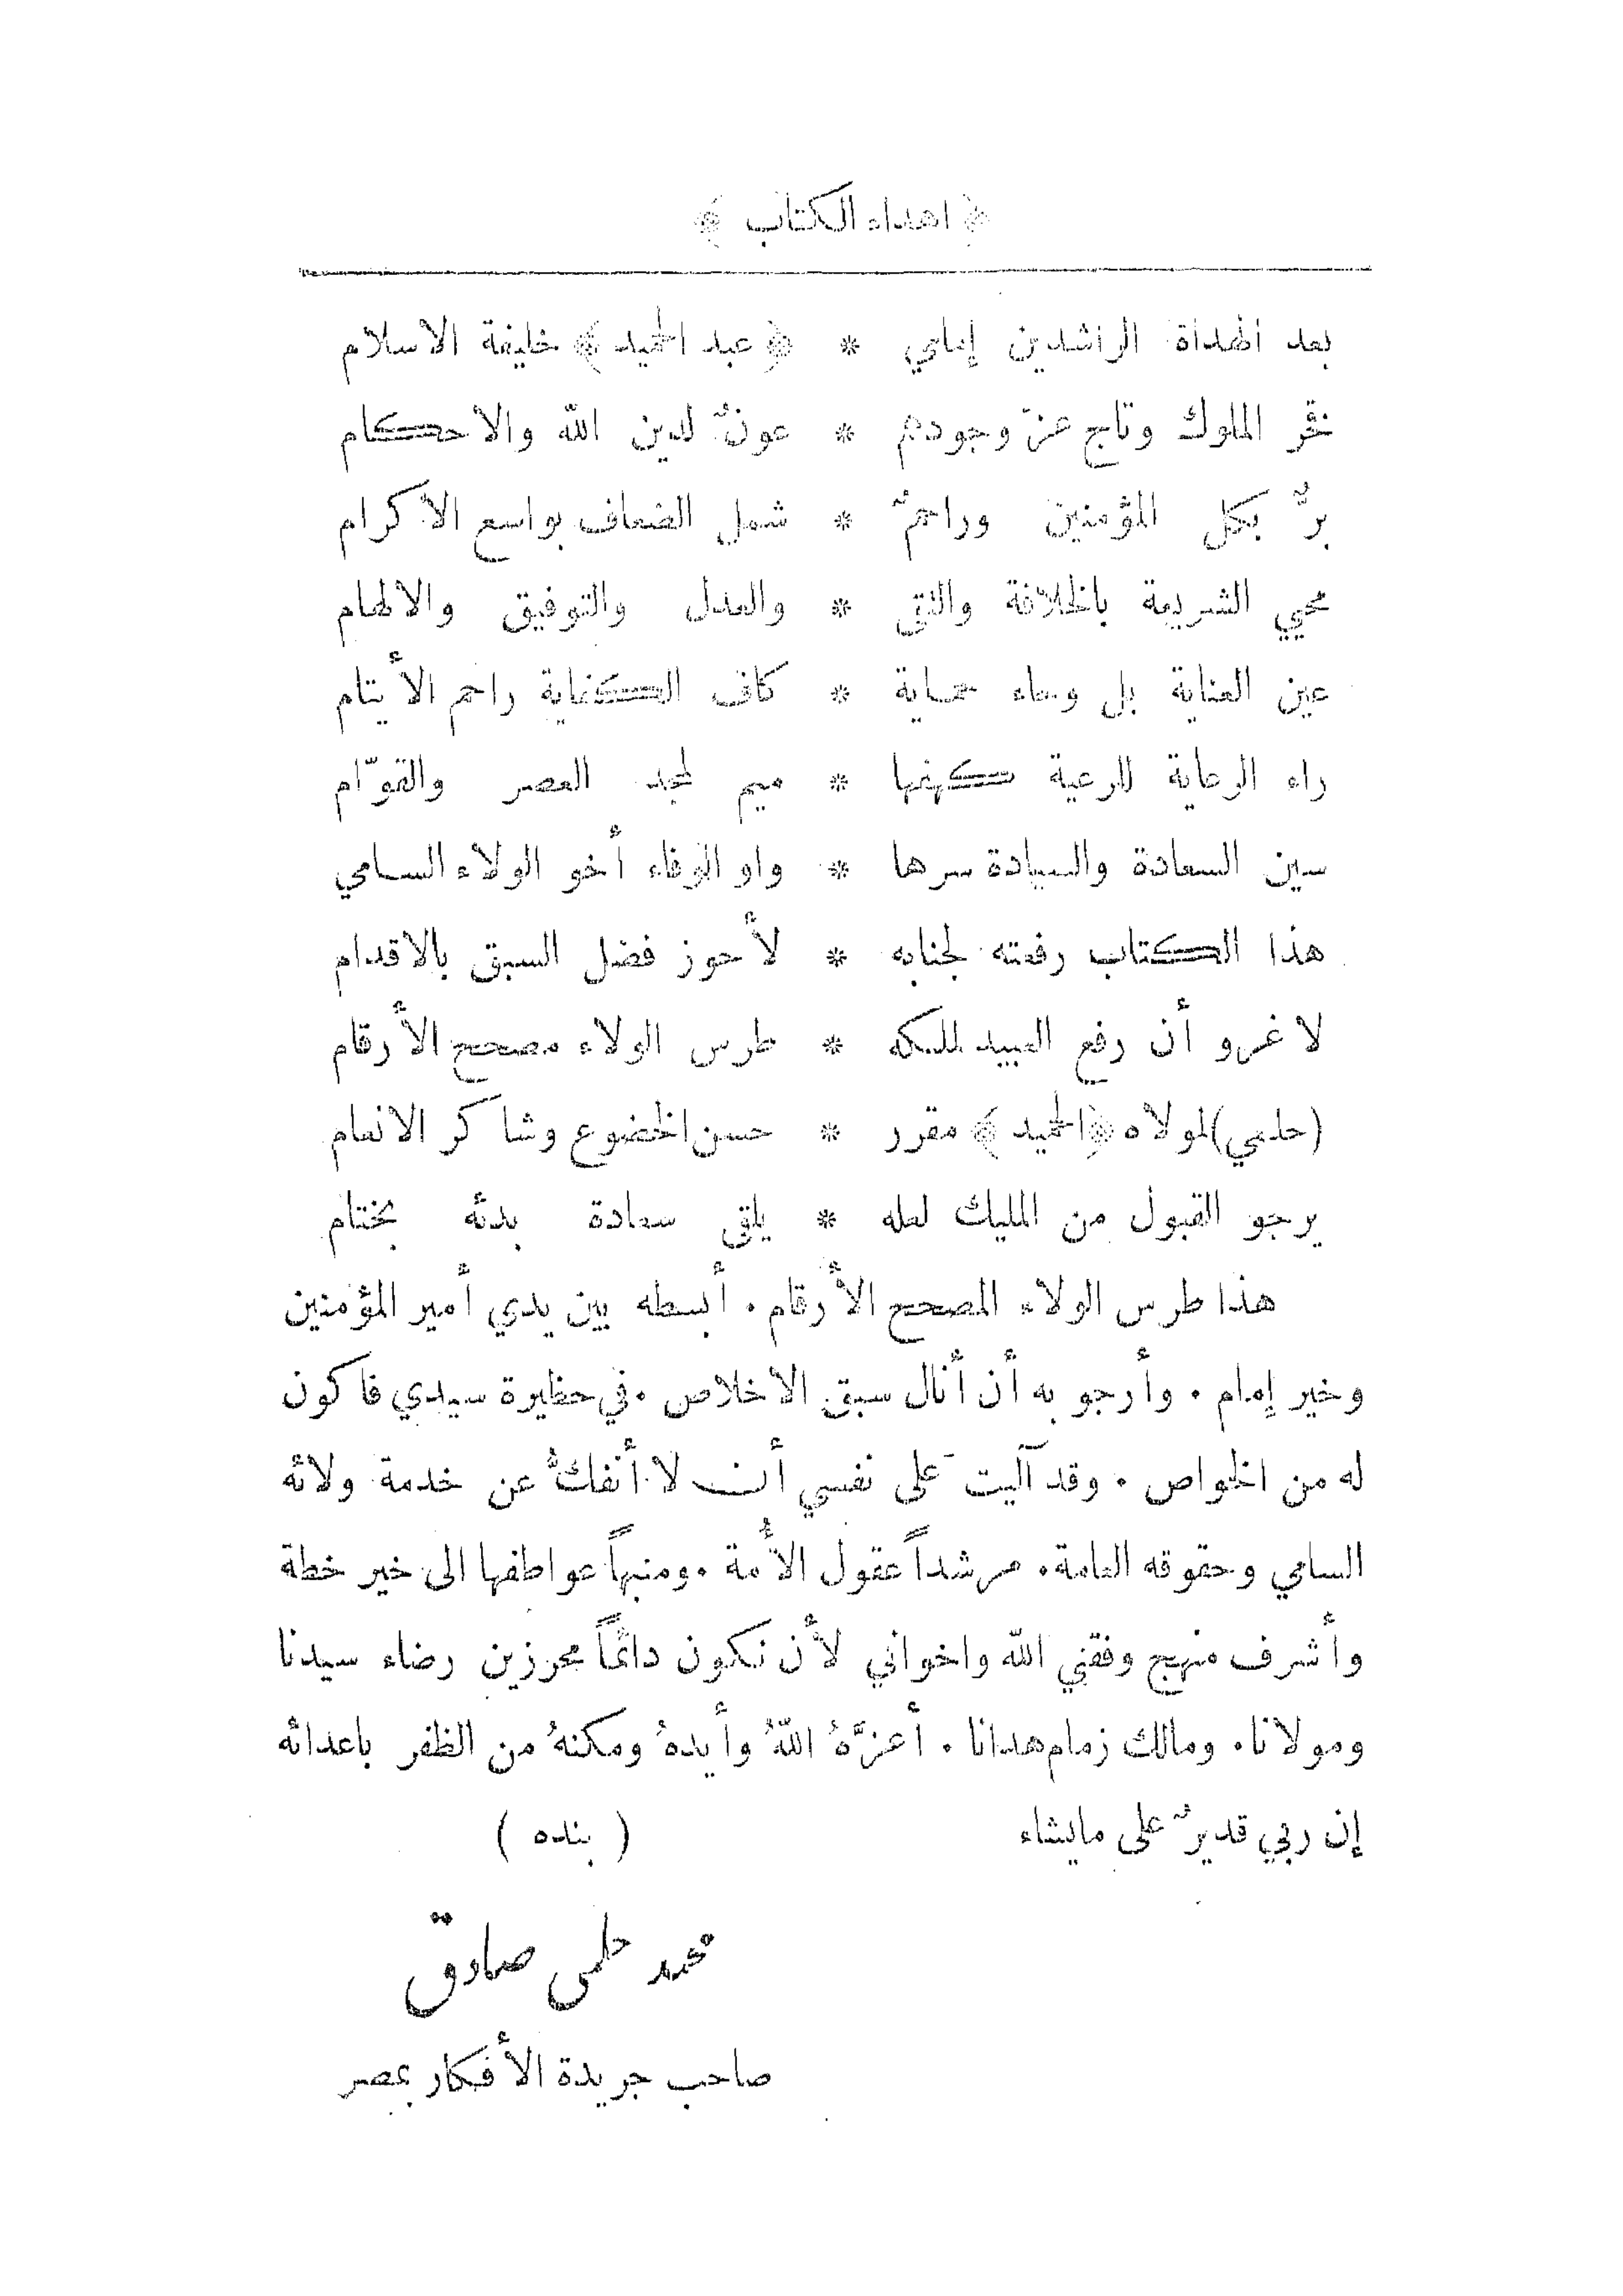 ﴿ اهداء الكتاب ﴾
بعد الهداة الراشدين إمامي * ﴿ عبد الحميد ﴾ خليفة الاسلام
فخر الملوك وتاج عزّ وجودهم * عونٌ لدين اللّه والاحكام
برٌّ بكل المؤمنين وراحمٌ * شمل الضعاف بواسع الاكرام
محيي الشريعة بالخلافة والتقى * والعدل والتوفيق والالهام
عين العناية بل وحاء حماية * كاف الكفاية راحم الأيتام
راء الرعاية للرعية كهفها * ميم لمجد العصر والقوّام
سين السعادة والسيادة سرها * واو الوفاء أخو الولاء السامي
هذا الكتاب رفعته لجنابه * لأحوز فضل السبق بالاقدام
لا غرو أن رفع العبيد لملكه * طرس الولاء مصحح الأرقام
(حلمي) لمولاه ﴿الحميد﴾ مقرر * حسن الخضوع وشاكر الانعام
يرجو القبول من المليك لعله * يلقى سعادة بدئه بختام
هذا طرس الولاء المصحح الأرقام . أبسطه بين يدي أمير المؤمنين
وخير إمام . وأرجو به أن أنال سبق الاخلاص . في حظيرة سيدي فاكون
له من الخواص . وقد آليت على نفسي أن لا أنفكُّ عن خدمة ولائه
السامي وحقوقه العامة . مرشداً عقول الأُمة . ومنبهاً عواطفها الى خير خطة
وأشرف منهج وفقني اللّه واخواني لأن نكون دائماً محرزين رضاء سيدنا
ومولانا . ومالك زمام هدانا . أعزَّهُ اللّهُ وأيدهُ ومكنهُ من الظفر باعدائه
إن ربي قديرٌ على مايشاء ( بنده )
محمد حلمى صادق
صاحب جريدة الأفكار بمصر